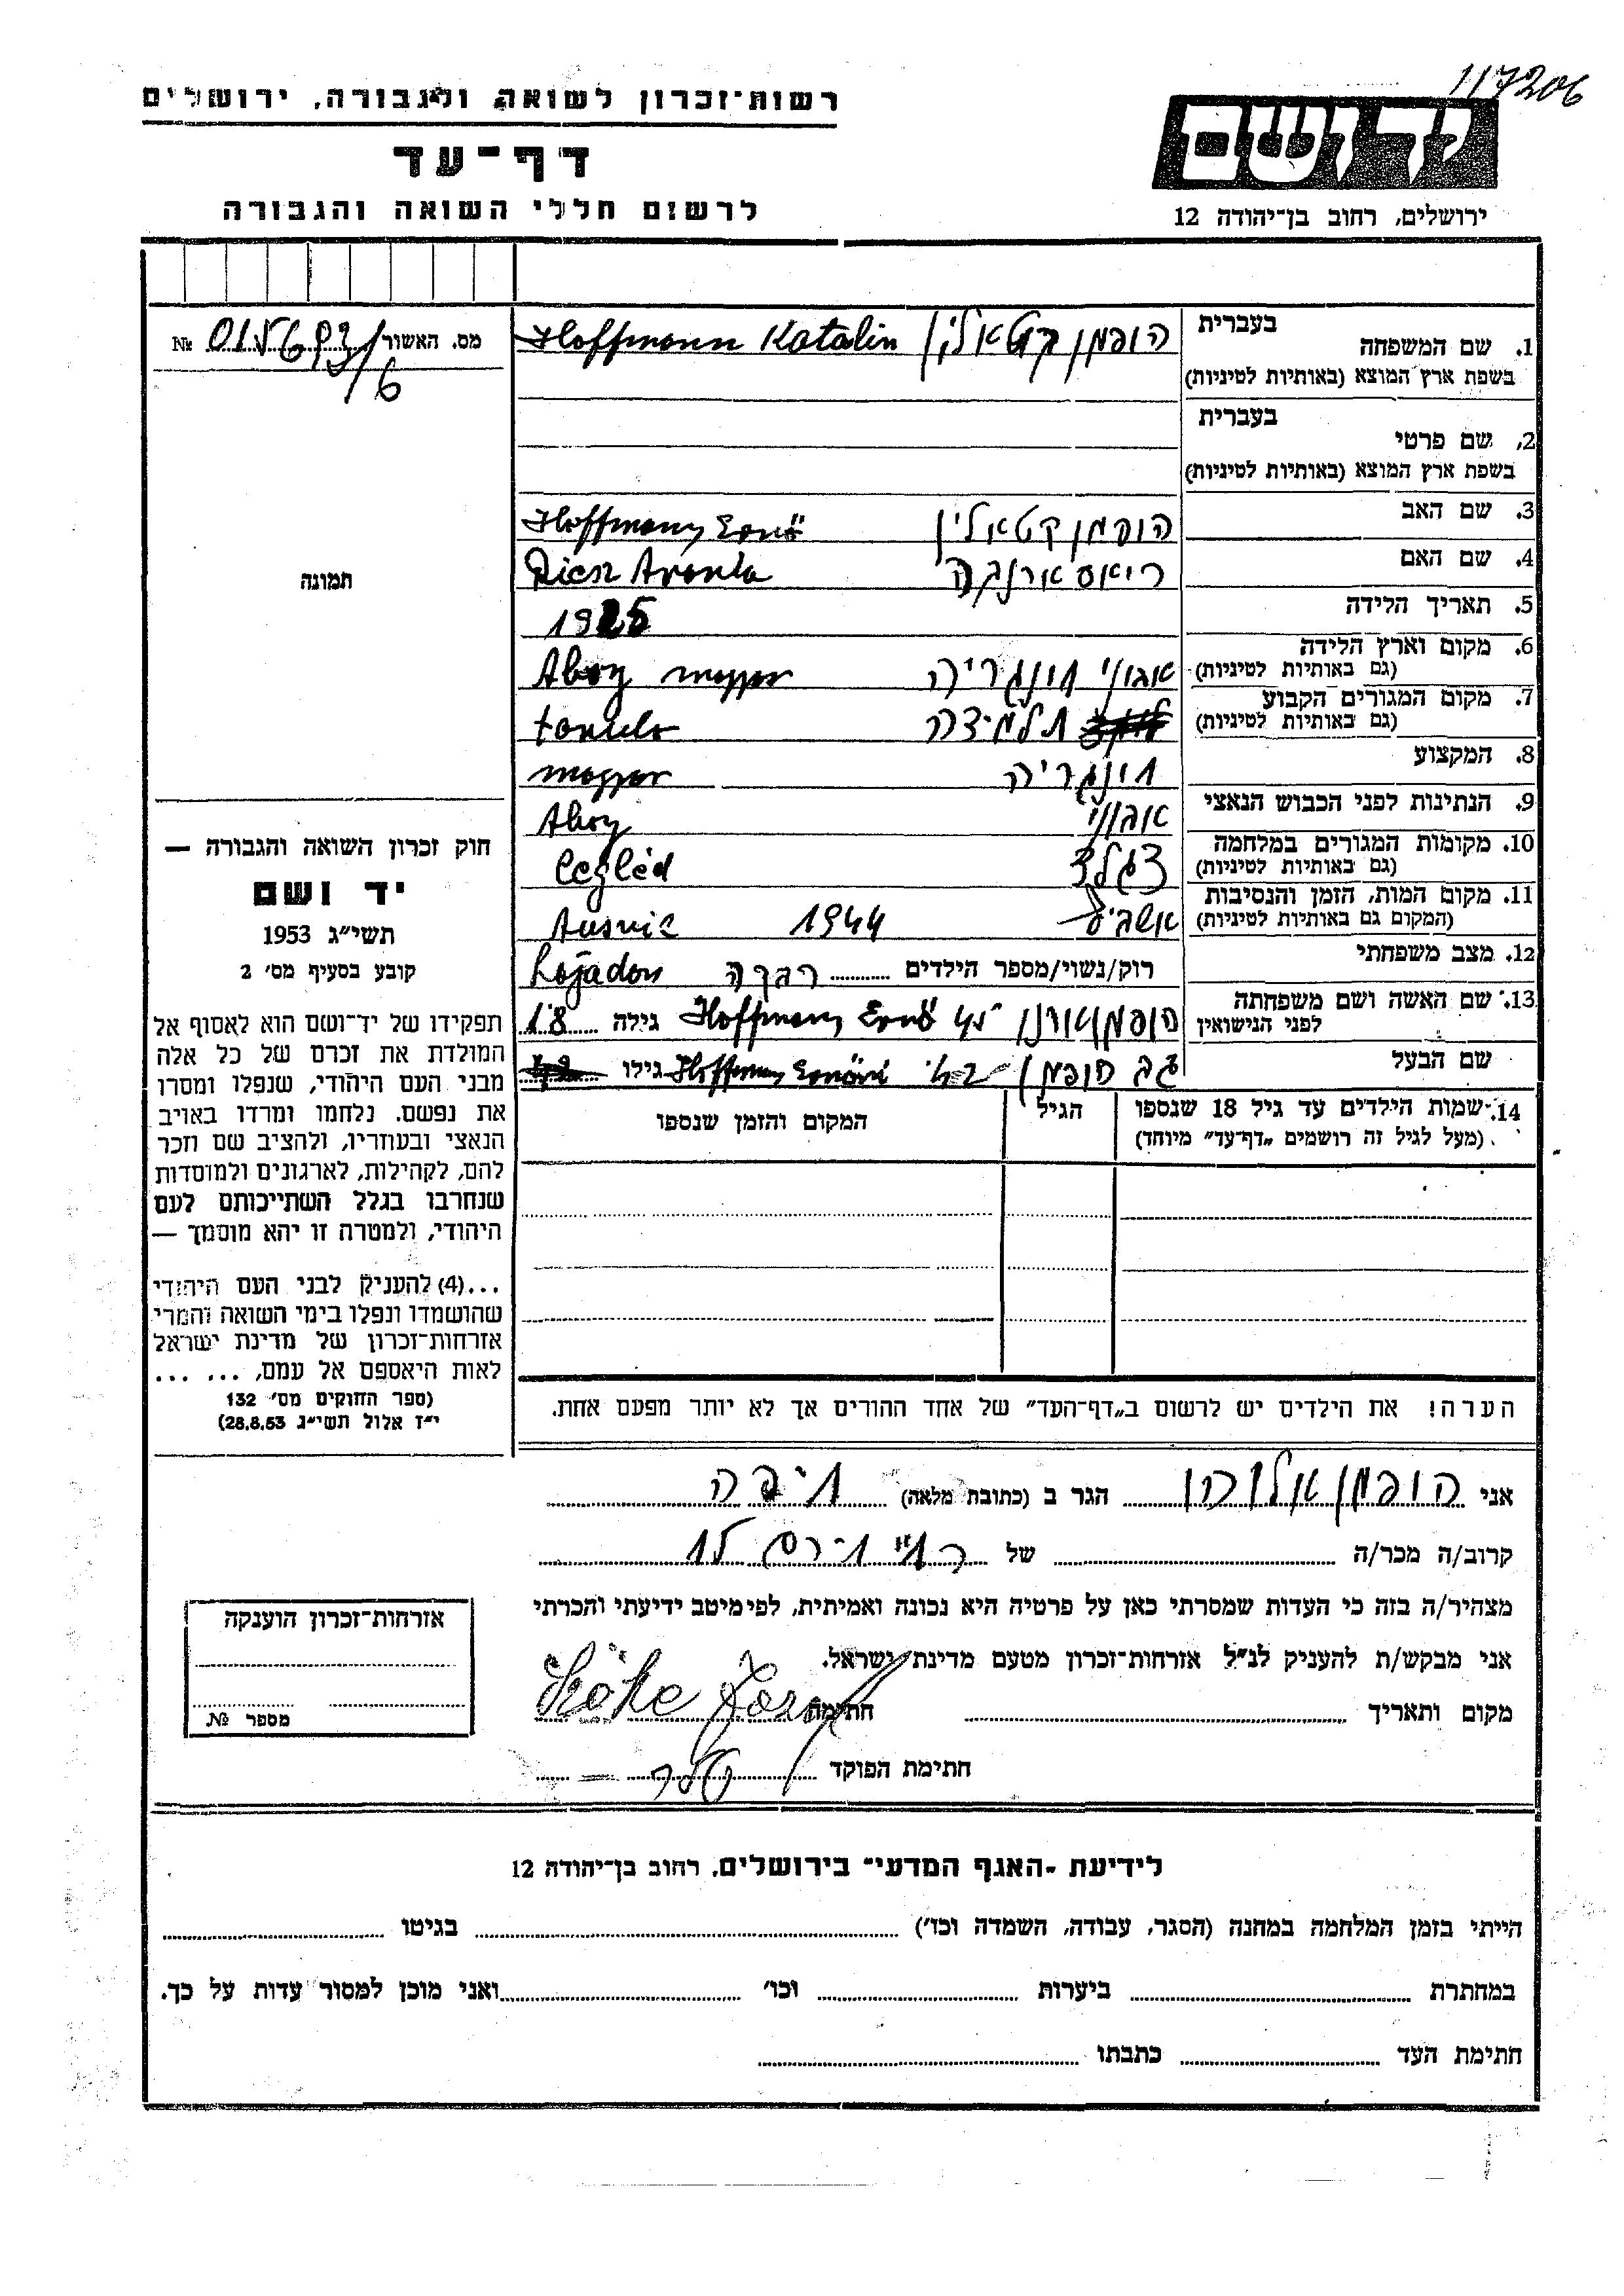 117206
רשות-זכרון לשואה ולגבורה, ירושלים
דף-עד
לרשום חללי השואה והגבורה
יד ושם
ירושלים, רחוב בן-יהודה 12
מס. האשור
№
/6
תמונה
חוק זכרון השואה והגבורה —
יד ושם
תשי״ג 1953
קובע בסעיף מס׳ 2
תפקידו של יד-ושם הוא לאסוף אל
המולדת את זכרם של כל אלה
מבני העם היהודי, שנפלו ומסרו
את נפשם. נלחמו ומרדו באויב
הנאצי ובעוזריו, ולהציב שם וזכר
להם, לקהילות, לארגונים ולמוסדות
שנחרבו בגלל השתייכותם לעם
היהודי, ולמטרה זו יהא מוסמך —
...(4) להעניק לבני העם היהודי
שהושמדו ונפלו בימי השואה והמרי
אזרחות-זכרון של מדינת ישראל
לאות היאספם אל עמם, ... ...
(ספר החוקים מס׳ 132
י״ז אלול תשי״ג 28.8.53)
בעברית
1. שם המשפחה הופמן קטאלין Hoffmann Katalin
בשפת ארץ המוצא (באותיות לטיניות)
בעברית
2. שם פרטי
בשפת ארץ המוצא (באותיות לטיניות)
3. שם האב הופמן קטאלין Hoffmann Ernö
4. שם האם ריאס ארנקה Riesz Aranka
5. תאריך הלידה 1925
6. מקום וארץ הלידה אבוני הונגריה Abony magyar
(גם באותיות לטיניות)
7. מקום המגורים הקבוע תלמידה tanulo
(גם באותיות לטיניות)
8. המקצוע הונגריה magyar
9. הנתינות לפני הכבוש הנאצי אבוני Abony
10. מקומות המגורים במלחמה צגלד Cegléd
(גם באותיות לטיניות)
11. מקום המות, הזמן והנסיבות 1944
(המקום גם באותיות לטיניות)
12. מצב משפחתי רוק/נשוי/מספר הילדים Hajadon
13. שם האשה ושם משפחתה Hoffmann Ernö גילה 18
לפני הנישואין
שם הבעל הופמן Hoffmann Ernöné גילו
14. שמות הילדים עד גיל 18 שנספו הגיל המקום והזמן שנספו
(מעל לגיל זה רושמים „דף-עד״ מיוחד)
הערה! את הילדים יש לרשום ב„דף-העד״ של אחד ההורים אך לא יותר מפעם אחת.
אני הופמן הגר ב (כתובת מלאה) חיפה
קרוב/ה מכר/ה של
מצהיר/ה בזה כי העדות שמסרתי כאן על פרטיה היא נכונה ואמיתית, לפי מיטב ידיעתי והכרתי
אני מבקש/ת להעניק לנ״ל אזרחות-זכרון מטעם מדינת ישראל.
מקום ותאריך חתימה
חתימת הפוקד
אזרחות-זכרון הוענקה
מספר №
לידיעת -האגף המדעי- בירושלים, רחוב בן-יהודה 12
הייתי בזמן המלחמה במחנה (הסגר, עבודה, השמדה וכו׳) בגיטו
במחתרת ביערות וכו׳ ואני מוכן למסור עדות על כך.
חתימת העד כתבתו